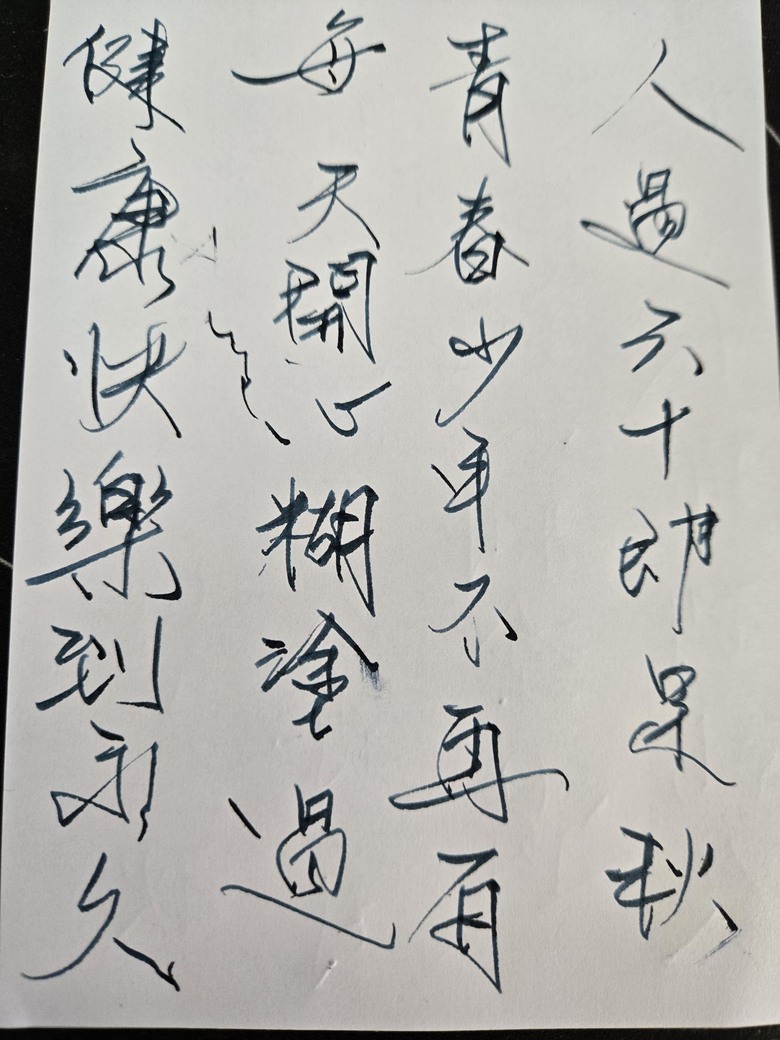 人過六十即是秋
青春少年不再有
每天開心糊塗過
健康快樂到永久